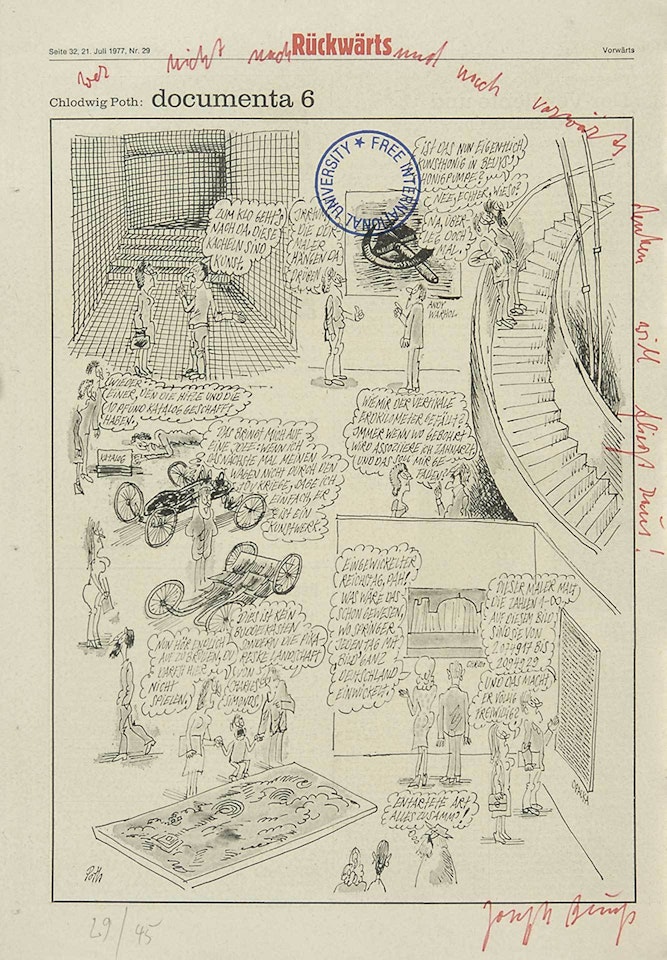 Seite 32, 21. Juli 1977, Nr. 29
Rückwärts
Vorwärts
wer nicht nach
und nach vorwärts
denken will fliegt raus!
Chlodwig Poth: documenta 6
FREE INTERNATIONAL UNIVERSITY
ZUM KLO GEHT'S
NACH DA. DIESE
KACHELN SIND
KUNST.
DIE DDR-
MALER
HÄNGEN DA
DRÜBEN.
IST DAS NUN EIGENTLICH
KUNSTHONIG IN BEUYS'
HONIGPUMPE?
NEE, ECHTER, WIESO?
NA, ÜBER-
LEG DOCH
MAL.
ANDY
WARHOL
WIEDER
EINER, DEN DIE HITZE UND DIE
10 PFUND KATALOG GESCHAFFT
HABEN.
KATALOG
DAS BRINGT MICH AUF
EINE IDEE: WENN ICH
DAS NÄCHSTE MAL MEINEN
WAGEN NICHT DURCH DEN
TÜV KRIEGE, SAGE ICH
EINFACH, ER
IST EIN
KUNSTWERK.
WIE MIR DER VERTIKALE
ERDKILOMETER GEFÄLLT?
IMMER WENN WO GEBOHRT
WIRD ASSOZIIERE ICH ZAHNARZT,
UND DAS SOLL MIR GE-
FALLEN?
NUN HÖR ENDLICH
AUF ZU BRÜLLEN, DU
DARFST HIER
NICHT
SPIELEN.
DIES IST KEIN
BUDDELKASTEN,
SONDERN DIE
LANDSCHAFT
VON
CHARLES
SIMONDS.
EINGEWICKELTER
REICHSTAG, PAH!
WAS WÄRE DAS
SCHON GEWESEN,
WO SPRINGER
JEDEN TAG MIT
BILD GANZ
DEUTSCHLAND
EINWICKELT.
DIESER MALER MALT
DIE ZAHLEN 1-∞
AUF DIESEM BILD
SIND SIE VON
BIS
UND DAS MACHT
ER VÖLLIG
FREIWILLIG?
OPALKA
ENTARTETE ART
ALLES ZUSAMM!
Poth
29/45
Joseph Beuys